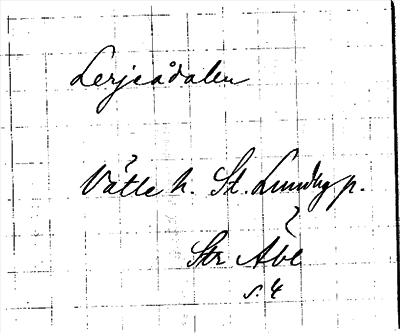 Lerjeådalen
Vätte h. St. Lundby p.
Str Abl
s. 4